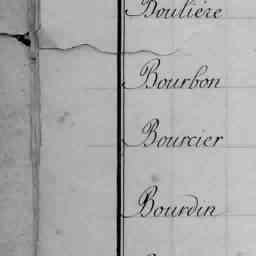 Boulière
Bourbon
Bourcier
Bourdin